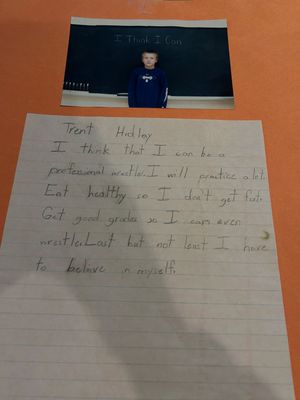 I Think I Can
Trent Hidlay
I think that I can be a
professional wrestler. I will practice alot.
Eat healthy so I don't get fat.
Get good grades so I can even
wrestle. Last but not least I have
to beleive in myself.